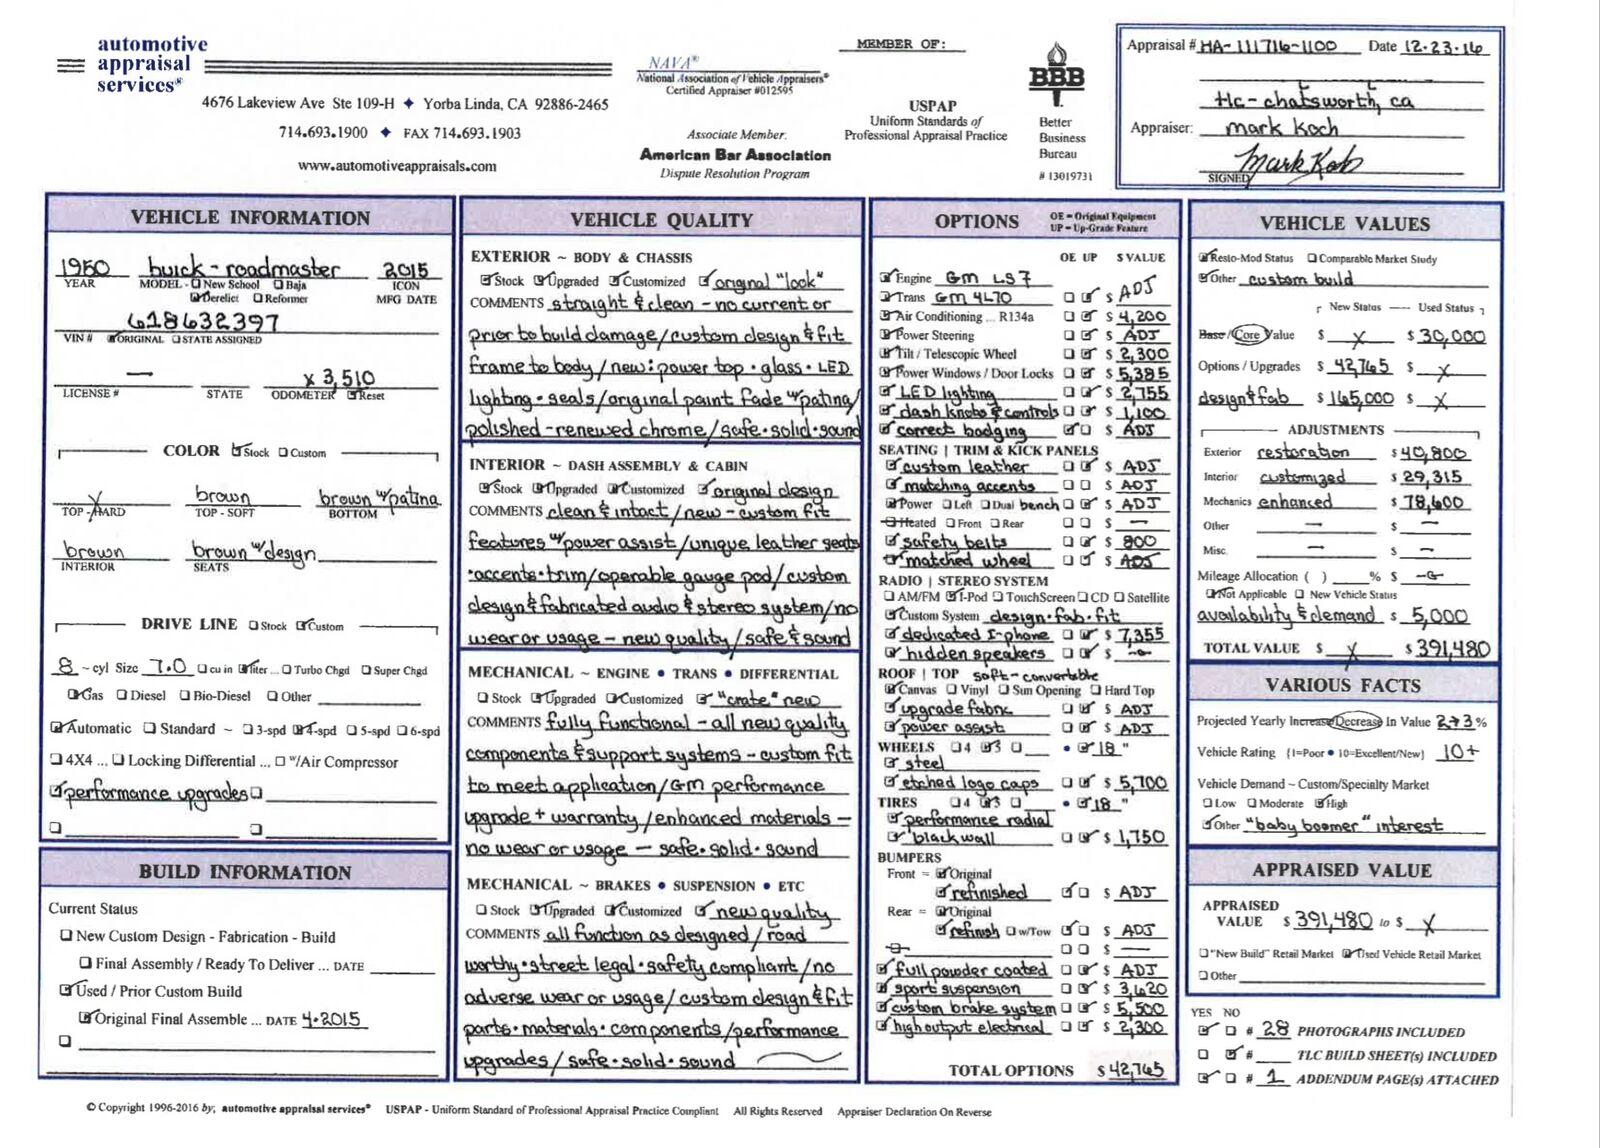 automotive
appraisal
services®
4676 Lakeview Ave Ste 109-H ♦ Yorba Linda, CA 92886-2465
714.693.1900 ♦ FAX 714.693.1903
www.automotiveappraisals.com
NAVA®
National Association of Vehicle Appraisers®
Certified Appraiser #012595
Associate Member:
American Bar Association
Dispute Resolution Program
MEMBER OF:
USPAP
Uniform Standards of
Professional Appraisal Practice
BBB
Better
Business
Bureau
# 13019731
Appraisal # HA-111716-1100 Date 12.23.16
tlc-chatsworth, ca
Appraiser: mark koch
SIGNED Mark Koch
VEHICLE INFORMATION
1950 buick-roadmaster 2015
YEAR MODEL - New School Baja ICON
Derelict Reformer MFG DATE
618632397
VIN # ORIGINAL STATE ASSIGNED
— x 3,510
LICENSE # STATE ODOMETER Reset
COLOR Stock Custom
x brown brown w/patina
TOP - HARD TOP - SOFT BOTTOM
brown brown w/design
INTERIOR SEATS
DRIVE LINE Stock Custom
8 ~ cyl Size 7.0 cu in liter ... Turbo Chgd Super Chgd
Gas Diesel Bio-Diesel Other
Automatic Standard ~ 3-spd 4-spd 5-spd 6-spd
4X4 ... Locking Differential ... w/Air Compressor
performance upgrades
BUILD INFORMATION
Current Status
New Custom Design - Fabrication - Build
Final Assembly / Ready To Deliver ... DATE
Used / Prior Custom Build
Original Final Assemble ... DATE 4.2015
VEHICLE QUALITY
EXTERIOR ~ BODY & CHASSIS
Stock Upgraded Customized original "look"
COMMENTS straight & clean - no current or
prior to build damage/custom design & fit
frame to body/new: power top · glass · LED
lighting · seals/original paint fade w/patina/
polished-renewed chrome/safe·solid·sound
INTERIOR ~ DASH ASSEMBLY & CABIN
Stock Upgraded Customized original design
COMMENTS clean & intact/new-custom fit
features w/power assist/unique leather seats
·accents·trim/operable gauge pod/custom
design & fabricated audio & stereo system/no
wear or usage - new quality/safe & sound
MECHANICAL ~ ENGINE • TRANS • DIFFERENTIAL
Stock Upgraded Customized "crate" new
COMMENTS fully functional - all new quality
components & support systems - custom fit
to meet application/GM performance
upgrade + warranty/enhanced materials -
no wear or usage - safe·solid·sound
MECHANICAL ~ BRAKES • SUSPENSION • ETC
Stock Upgraded Customized new quality
COMMENTS all function as designed/road
worthy·street legal·safety compliant/no
adverse wear or usage/custom design & fit
parts·materials·components/performance
upgrades/safe·solid·sound
OPTIONS OE = Original Equipment
UP = Up-Grade Feature
OE UP $ VALUE
Engine GM LS7
Trans GM 4L70 $ ADJ
Air Conditioning ... R134a $ 4,200
Power Steering $ ADJ
Tilt / Telescopic Wheel $ 2,300
Power Windows / Door Locks $ 5,385
LED lighting $ 2,755
dash knobs & controls $ 1,100
correct badging $ ADJ
SEATING | TRIM & KICK PANELS
custom leather $ ADJ
matching accents $ ADJ
Power Left Dual bench $ ADJ
Heated Front Rear $ —
safety belts $ 800
matched wheel $ ADJ
RADIO | STEREO SYSTEM
AM/FM I-Pod TouchScreen CD Satellite
Custom System design·fab·fit
dedicated I-phone $ 7,355
hidden speakers $
ROOF | TOP soft-convertible
Canvas Vinyl Sun Opening Hard Top
upgrade fabric $ ADJ
power assist $ ADJ
WHEELS 4 5 • 18 "
steel
etched logo caps $ 5,700
TIRES 4 5 • 18 "
performance radial
blackwall $ 1,750
BUMPERS
Front = Original
refinished $ ADJ
Rear = Original
refinish w/Tow $ ADJ
$ —
full powder coated $ ADJ
sport suspension $ 3,620
custom brake system $ 5,500
high output electrical $ 2,300
TOTAL OPTIONS $ 42,765
VEHICLE VALUES
Resto-Mod Status Comparable Market Study
Other custom build
New Status — Used Status
Base / Core Value $ x $ 30,000
Options / Upgrades $ 42,765 $ x
design & fab $ 165,000 $ x
ADJUSTMENTS
Exterior restoration $ 40,800
Interior customized $ 29,315
Mechanics enhanced $ 78,600
Other — $ —
Misc. — $ —
Mileage Allocation ( ) % $
Not Applicable New Vehicle Status
availability & demand $ 5,000
TOTAL VALUE $ x $ 391,480
VARIOUS FACTS
Projected Yearly Increase/Decrease In Value 2→3 %
Vehicle Rating (1=Poor • 10=Excellent/New) 10+
Vehicle Demand ~ Custom/Specialty Market
Low Moderate High
Other "baby boomer" interest
APPRAISED VALUE
APPRAISED
VALUE $ 391,480 to $ x
"New Build" Retail Market Used Vehicle Retail Market
Other
YES NO
# 28 PHOTOGRAPHS INCLUDED
# TLC BUILD SHEET(S) INCLUDED
# 1 ADDENDUM PAGE(S) ATTACHED
© Copyright 1996-2016 by; automotive appraisal services® USPAP - Uniform Standard of Professional Appraisal Practice Compliant All Rights Reserved Appraiser Declaration On Reverse